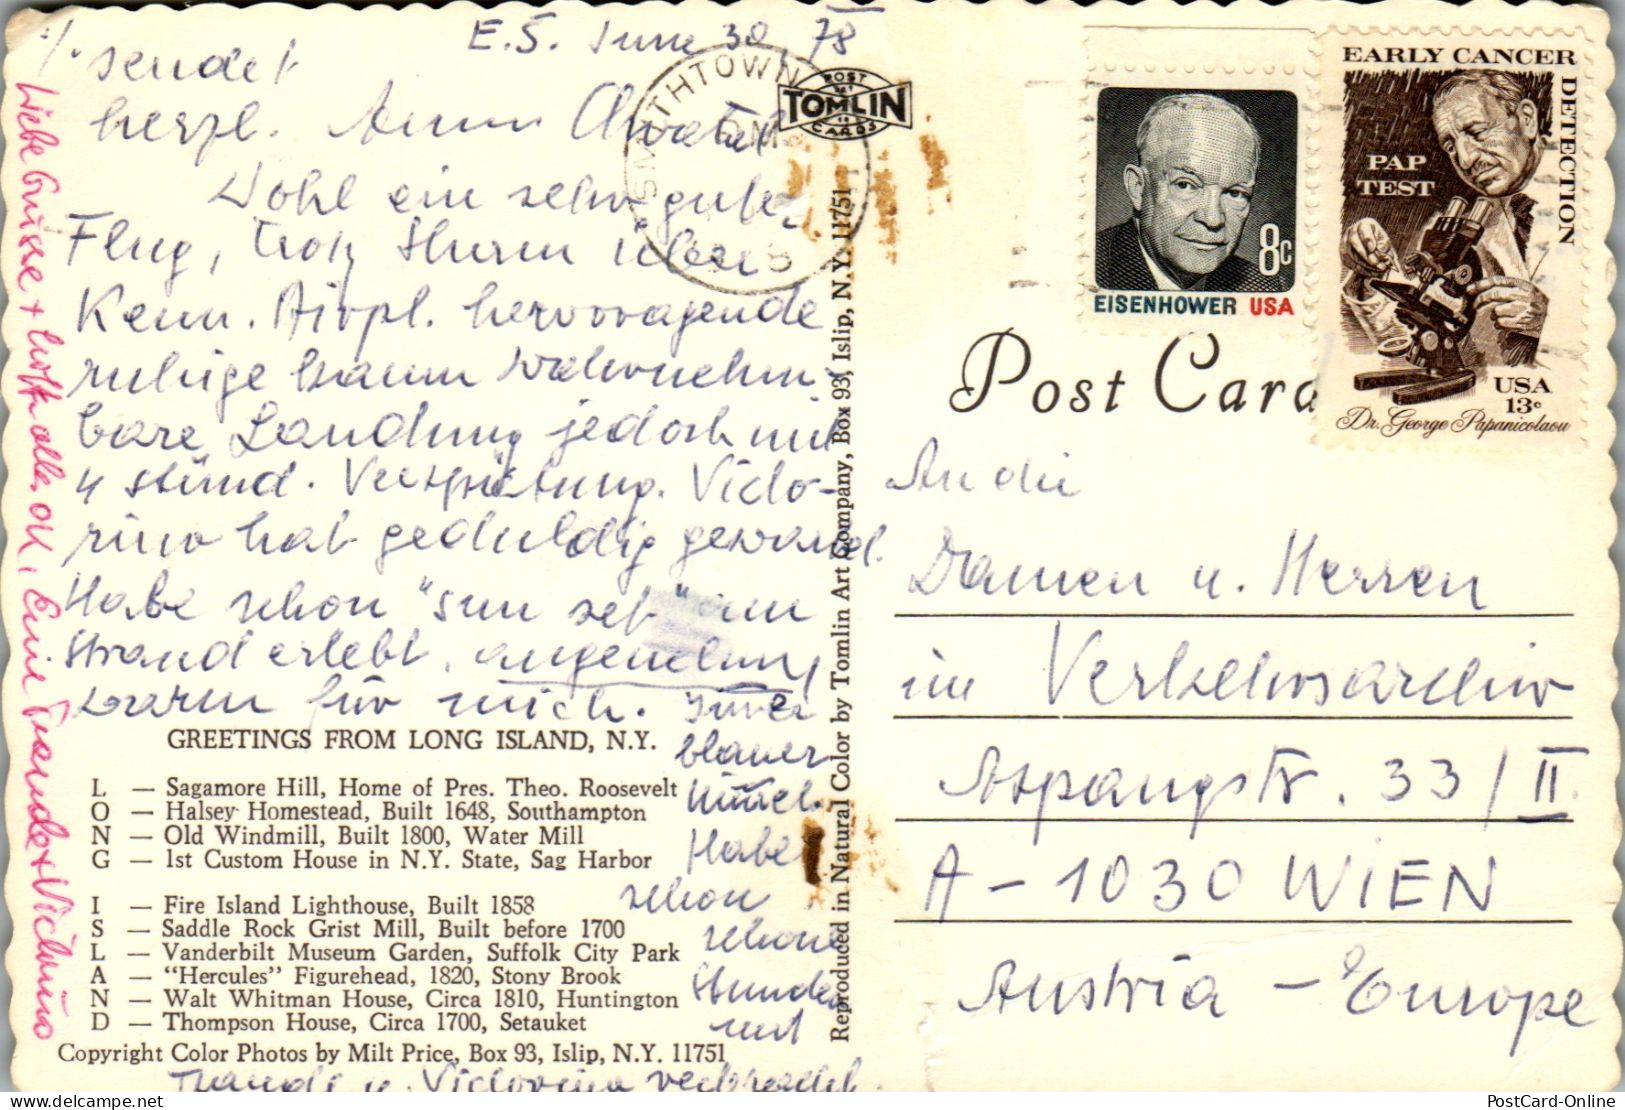 E.S. June 30, 78
./. sendet
herzl. Anna
Wohl ein sehr guter
Flug, trotz Sturm über
Kenn. Airpl. hervorragende
ruhige kaum wahrnehm
bare Landung jedoch mit
4 stünd. Verspätung. Victo-
rino hat geduldig gewartet.
Habe schon "sun set" am
Strand erlebt, angenehm
warm für mich. Immer
blauer
Himmel.
Habe
schon
schöne
Stunden
mit
Traude u. Victorino verbracht.
Liebe Grüsse + hoffe alles ok, Eure Traude + Victorino
GREETINGS FROM LONG ISLAND, N.Y.
L — Sagamore Hill, Home of Pres. Theo. Roosevelt
O — Halsey Homestead, Built 1648, Southampton
N — Old Windmill, Built 1800, Water Mill
G — 1st Custom House in N.Y. State, Sag Harbor
I — Fire Island Lighthouse, Built 1858
S — Saddle Rock Grist Mill, Built before 1700
L — Vanderbilt Museum Garden, Suffolk City Park
A — "Hercules" Figurehead, 1820, Stony Brook
N — Walt Whitman House, Circa 1810, Huntington
D — Thompson House, Circa 1700, Setauket
Copyright Color Photos by Milt Price, Box 93, Islip, N.Y. 11751
Reproduced in Natural Color by Tomlin Art Company, Box 93, Islip, N.Y. 11751
SMITHTOWN
PM
POST
TOMLIN
CARDS
8c
EISENHOWER USA
EARLY CANCER
DETECTION
PAP
TEST
USA
13c
Dr. George Papanicolaou
Post Card
An die
Damen u. Herren
im Verkehrsarchiv
Aspangstr. 33/II.
A-1030 WIEN
Austria - Europe
PostCard-Online